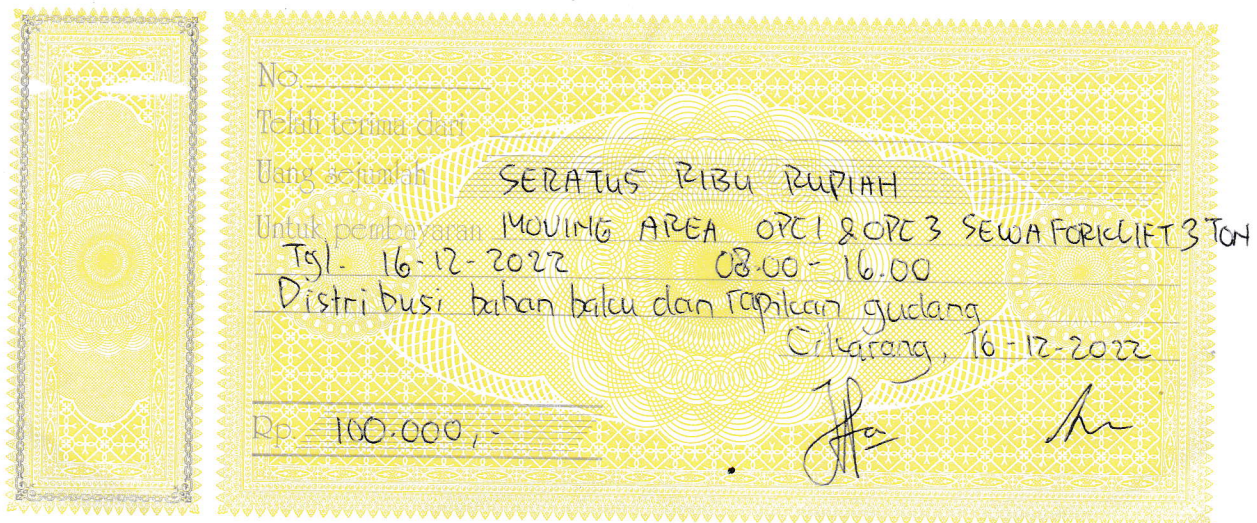 No.
Telah terima dari
Uang sejumlah SERATUS RIBU RUPIAH
Untuk pembayaran MOVING AREA OPC 1 & OPC 3 SEWA FORKLIFT 3 TON
Tgl. 16-12-2022 08.00 - 16.00
Distribusi bahan baku dan rapikan gudang
Cikarang, 16-12-2022
Rp. 100.000,-